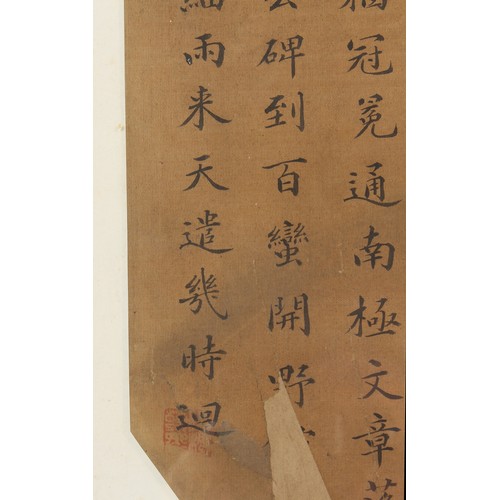 冠冕通南極文章落
碑到百蠻開野
細雨来天遣幾時迴